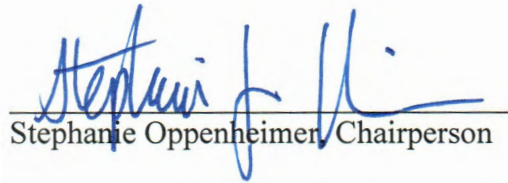 Stephanie Oppenheimer, Chairperson